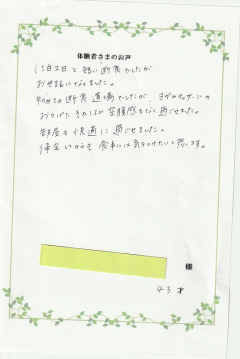 体験者さまのお声
1泊2日と短い断食でしたが
お世話になりました。
初めての断食道場でしたが、ヨガやマッサージの
おかげでそれほど空腹感もなく過ごせました。
部屋も快適に過ごせました。
帰宅してからも食事には気をつけたいと思います。
様
43才